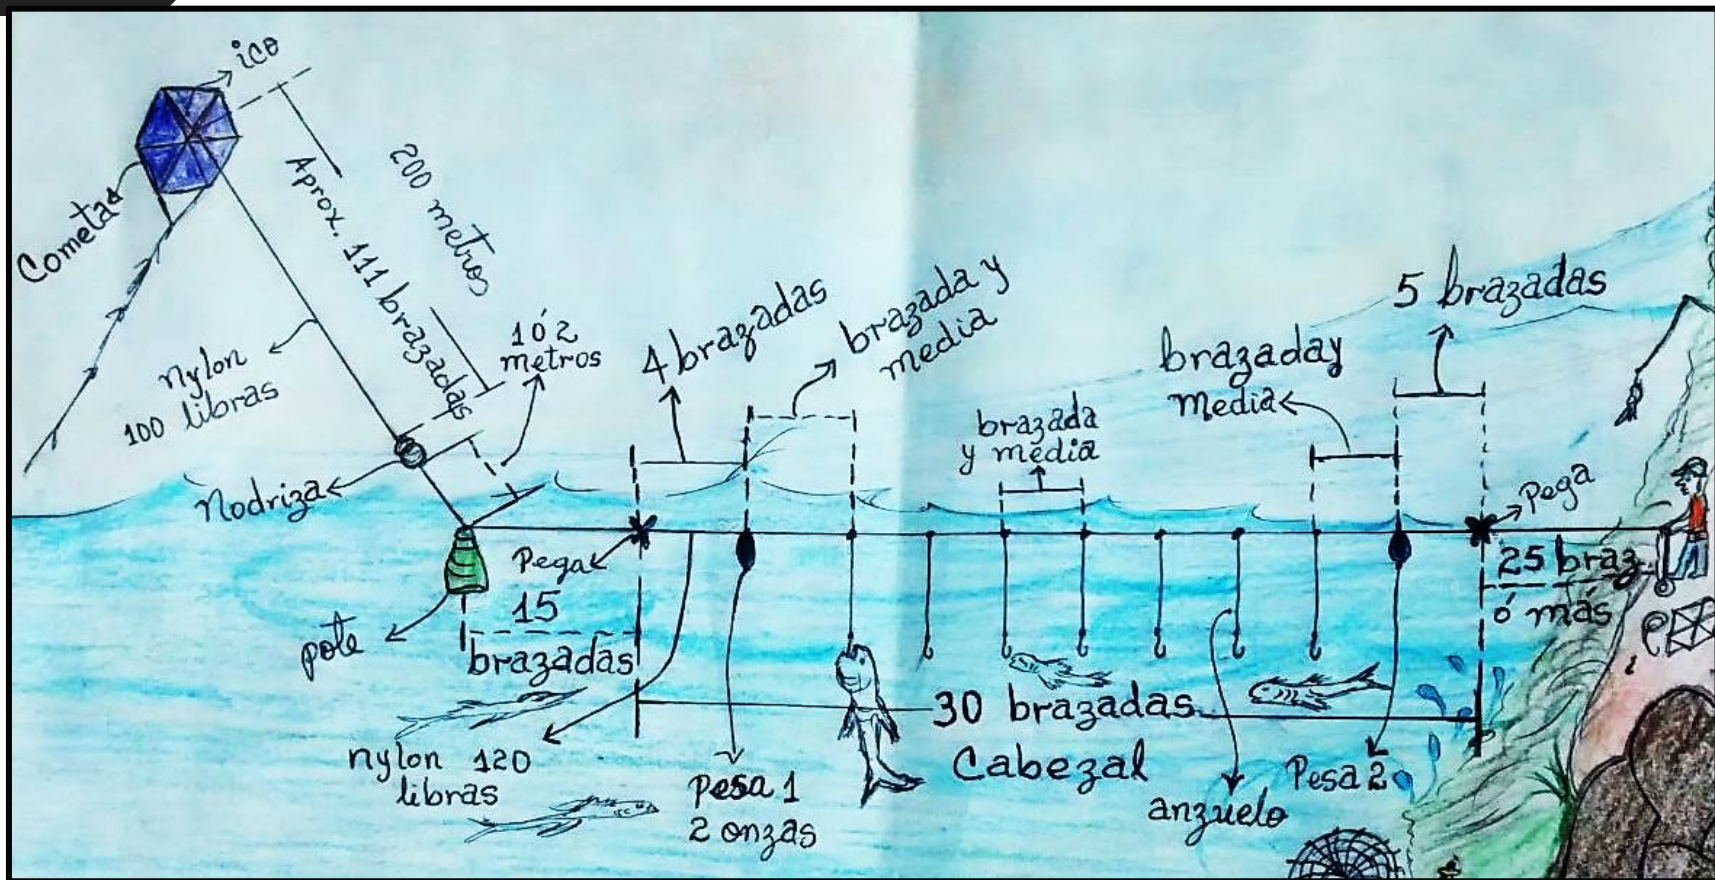 ico
Cometa
200 metros
Aprox. 111 brazadas
nylon
100 libras
1 ó 2
metros
Nodriza
4 brazadas
brazada y
media
brazada
y media
brazada y
Media
5 brazadas
Pega
Pega
25 braz
ó más
pote
15
brazadas
30 brazadas
Cabezal
nylon 120
libras
Pesa 1
2 onzas
anzuelo
Pesa 2